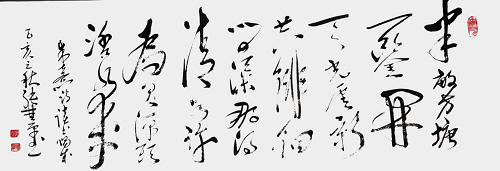 半畝方塘
一鑒開
天光雲影
共徘徊
問渠那得
清如許
為有源頭
活水來
朱熹詩
己亥之秋